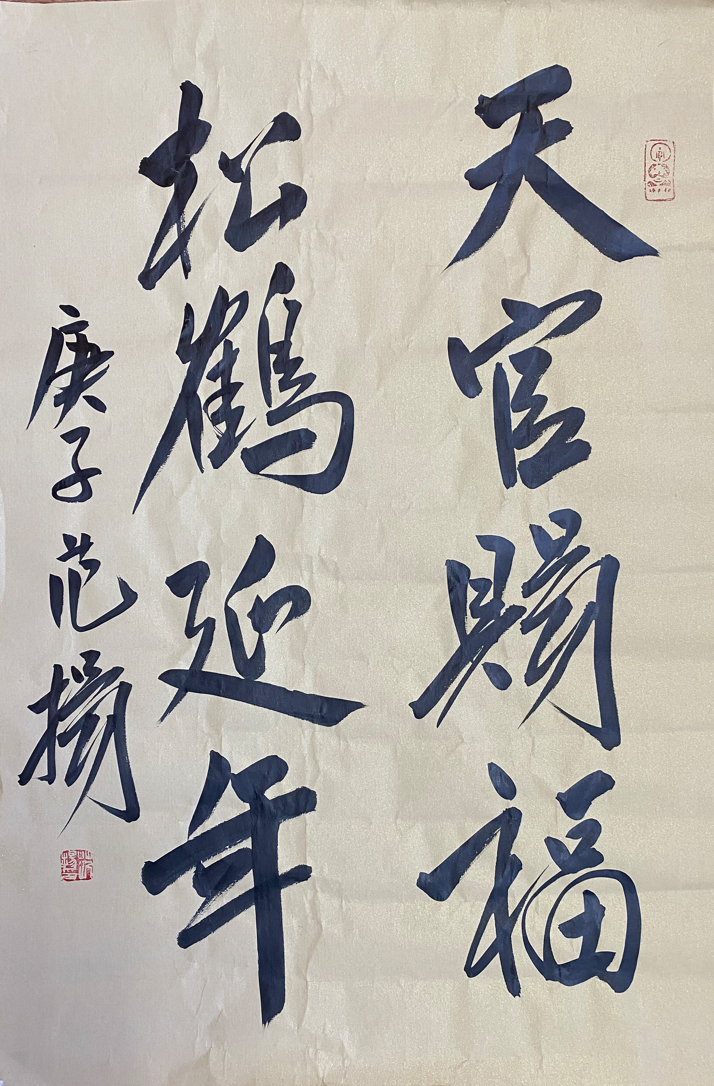 天官賜福
松鶴延年
庚子范揚